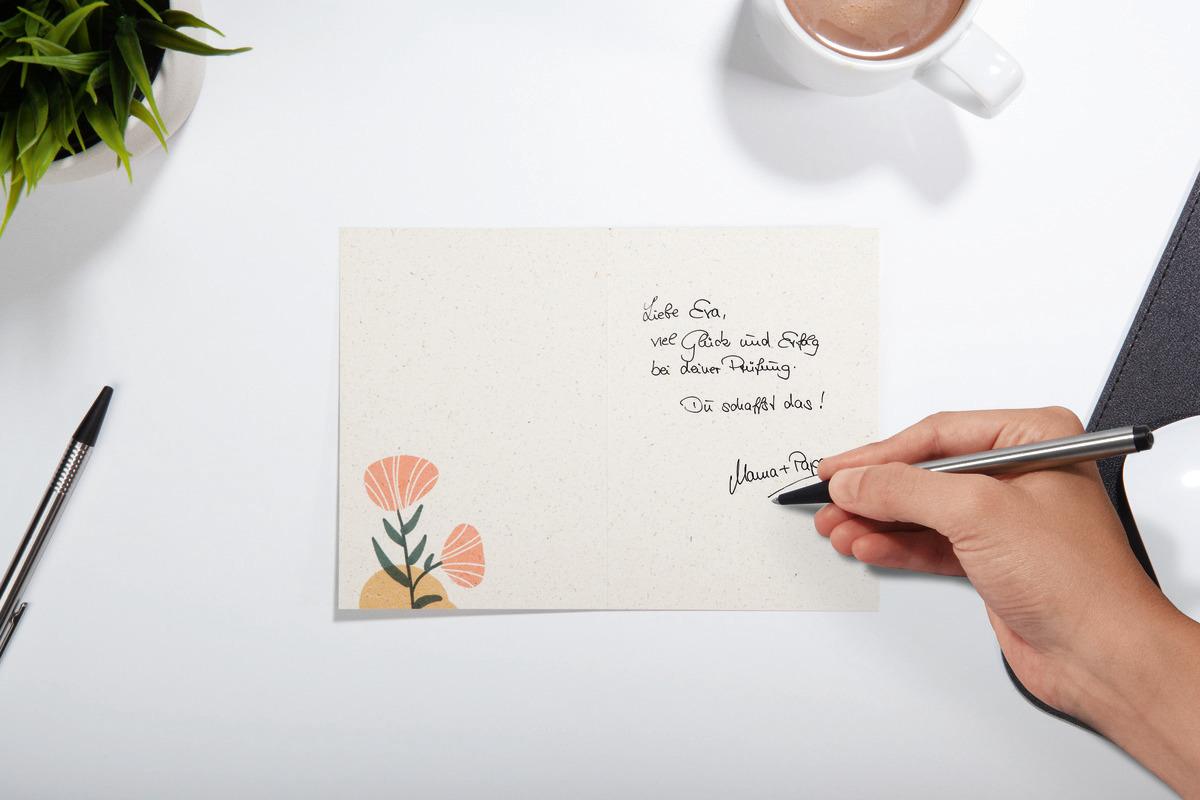 Liebe Eva,
viel Glück und Erfolg
bei deiner Prüfung.
Du schaffst das!
Mama + Papa